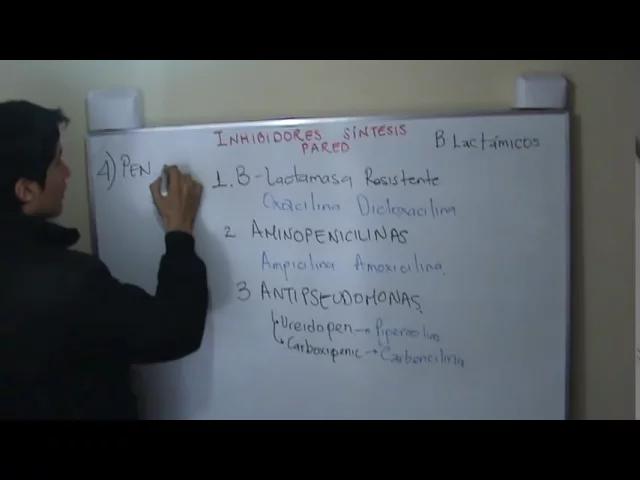 INHIBIDORES SÍNTESIS
PARED
B Lactámicos
4) PEN
1. B-Lactamasa Resistente
Oxacilina Dicloxacilina
2 AMINOPENICILINAS
Ampicilina Amoxicilina
3 ANTIPSEUDOMONAS
Ureidopen → Piperacilina
Carboxipenic → Carbencilina